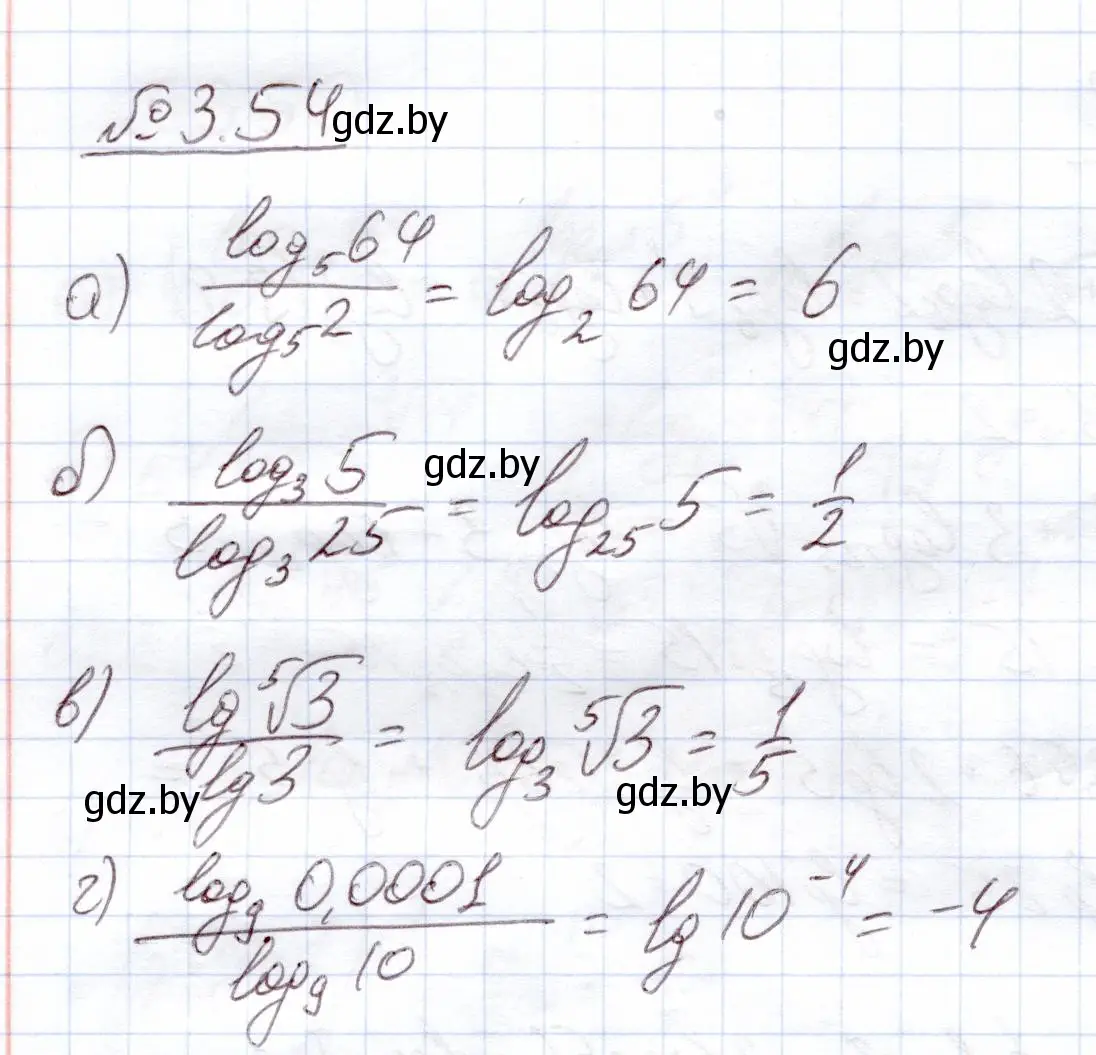 № 3.54 gdz.by
а) log₅64 / log₅2 = log₂ 64 = 6
gdz.by
б) log₃ 5 / log₃ 25 = log₂₅ 5 = 1/2
gdz.by
в) lg ⁵√3 / lg 3 = log₃ ⁵√3 = 1/5
gdz.by gdz.by
г) log₉ 0,0001 / log₉ 10 = lg 10⁻⁴ = -4